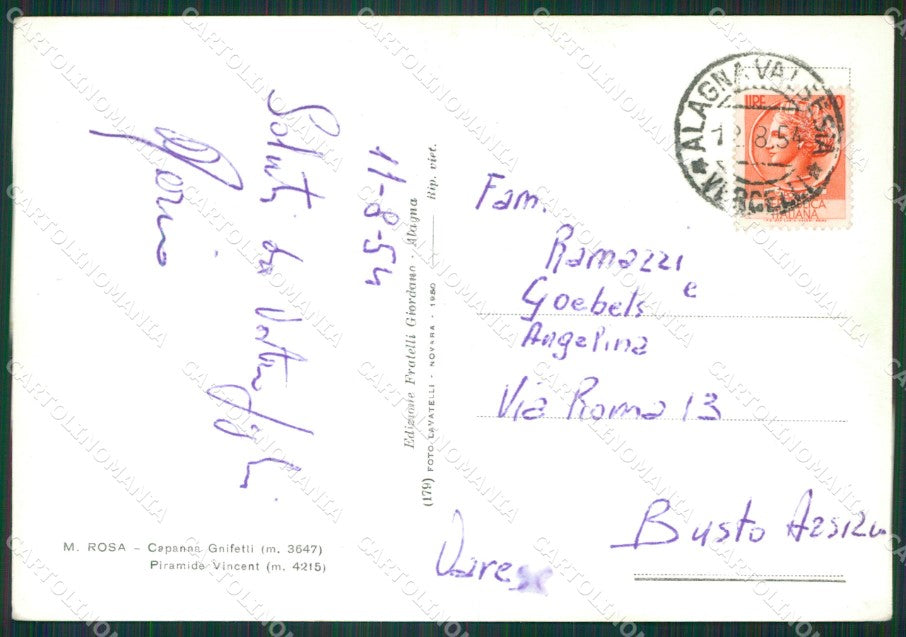 Saluti da Vostro figlio
11-8-54
Edizione Fratelli Giordano - Alagna Rip. viet.
(179) FOTO LAVATELLI - NOVARA - 1950
M. ROSA - Capanna Gnifetti (m. 3647)
Piramide Vincent (m. 4215)
ALAGNA VALSESIA
8.54
VERCELLI
LIRE
ITALIANA
Fam.
Ramazzi
e
Goebels
Angelina
Via Roma 13
Busto Arsizio
Varese
CARTOLINOMANIA